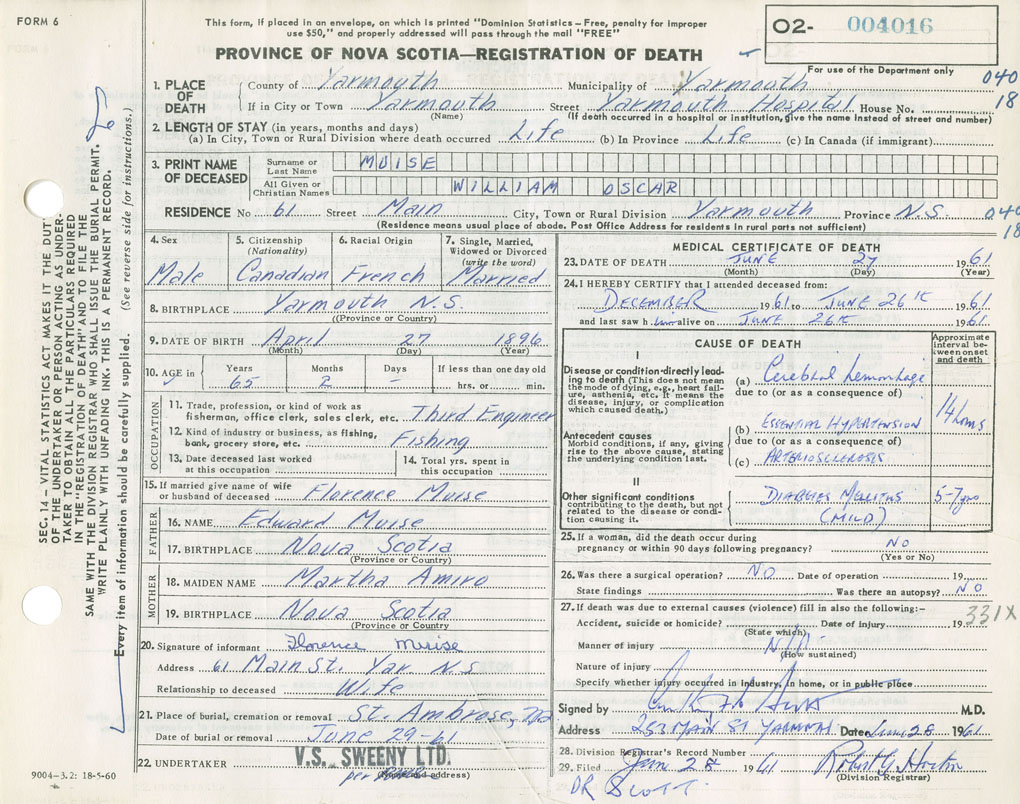 FORM 6
This form, if placed in an envelope, on which is printed "Dominion Statistics – Free, penalty for improper
use $50," and properly addressed will pass through the mail "FREE"
PROVINCE OF NOVA SCOTIA—REGISTRATION OF DEATH
O2- 004016
For use of the Department only
040
18
1. PLACE OF DEATH
County of Yarmouth Municipality of Yarmouth
If in City or Town Yarmouth Street Yarmouth Hospital House No.
(Name) (If death occurred in a hospital or institution, give the name instead of street and number)
2. LENGTH OF STAY (in years, months and days)
(a) In City, Town or Rural Division where death occurred Life (b) In Province Life (c) In Canada (if immigrant)
3. PRINT NAME OF DECEASED
Surname or Last Name MUISE
All Given or Christian Names WILLIAM OSCAR
RESIDENCE No 61 Street Main City, Town or Rural Division Yarmouth Province N.S. 040
(Residence means usual place of abode. Post Office Address for residents in rural parts not sufficient) 18
4. Sex
Male
5. Citizenship
(Nationality)
Canadian
6. Racial Origin
French
7. Single, Married,
Widowed or Divorced
(write the word)
Married
8. BIRTHPLACE Yarmouth N.S.
(Province or Country)
9. DATE OF BIRTH April 27 1896
(Month) (Day) (Year)
10. AGE in Years Months Days If less than one day old
65 2 – hrs. or min.
OCCUPATION
11. Trade, profession, or kind of work as
fisherman, office clerk, sales clerk, etc. Third Engineer
12. Kind of industry or business, as fishing,
bank, grocery store, etc. Fishing
13. Date deceased last worked
at this occupation
14. Total yrs. spent in
this occupation
15. If married give name of wife
or husband of deceased Florence Muise
FATHER
16. NAME Edward Muise
17. BIRTHPLACE Nova Scotia
(Province or Country)
MOTHER
18. MAIDEN NAME Martha Amiro
19. BIRTHPLACE Nova Scotia
(Province or Country)
20. Signature of informant Florence Muise
Address 61 Main St. Yar. N.S
Relationship to deceased Wife
21. Place of burial, cremation or removal St. Ambrose,
Date of burial or removal June 29-61
22. UNDERTAKER V.S. SWEENY LTD.
per address)
9004-3.2: 18-5-60
MEDICAL CERTIFICATE OF DEATH
23. DATE OF DEATH JUNE 27 1961
(Month) (Day) (Year)
24. I HEREBY CERTIFY that I attended deceased from:
DECEMBER 1961 to JUNE 26th 1961
and last saw him alive on JUNE 26th 1961
CAUSE OF DEATH
Approximate
interval be-
tween onset
and death
I
Disease or condition directly lead-
ing to death (This does not mean
the mode of dying, e.g., heart fail-
ure, asthenia, etc. It means the
disease, injury, or complication
which caused death.)
(a) Cerebral hemorrhage
due to (or as a consequence of)
14 hours
Antecedent causes
Morbid conditions, if any, giving
rise to the above cause, stating
the underlying condition last.
(b) ESSENTIAL HYPERTENSION
due to (or as a consequence of)
(c) ARTERIOSCLEROSIS
II
Other significant conditions
contributing to the death, but not
related to the disease or condi-
tion causing it.
DIABETES MELLITUS
(MILD)
5-7 yrs
25. If a woman, did the death occur during
pregnancy or within 90 days following pregnancy? NO
(Yes or No)
26. Was there a surgical operation? NO Date of operation 19
State findings Was there an autopsy? NO
27. If death was due to external causes (violence) fill in also the following:– 331X
Accident, suicide or homicide? Date of injury 19
(State which)
Manner of injury
(How sustained)
Nature of injury
Specify whether injury occurred in industry, in home, or in public place
Signed by M.D.
Address 253 MAIN ST YARMOUTH Date June 28 1961
28. Division Registrar's Record Number
29. Filed June 28 1961 Robert G. Horton
(Division Registrar)
DR SCOTT
SEC. 14 – VITAL STATISTICS ACT MAKES IT THE DUTY
OF THE UNDERTAKER OR PERSON ACTING AS UNDER-
TAKER TO OBTAIN ALL THE PARTICULARS REQUIRED
IN THE "REGISTRATION OF DEATH" AND TO FILE THE
SAME WITH THE DIVISION REGISTRAR WHO SHALL ISSUE THE BURIAL PERMIT.
WRITE PLAINLY WITH UNFADING INK. THIS IS A PERMANENT RECORD.
Every item of information should be carefully supplied. (See reverse side for instructions.)